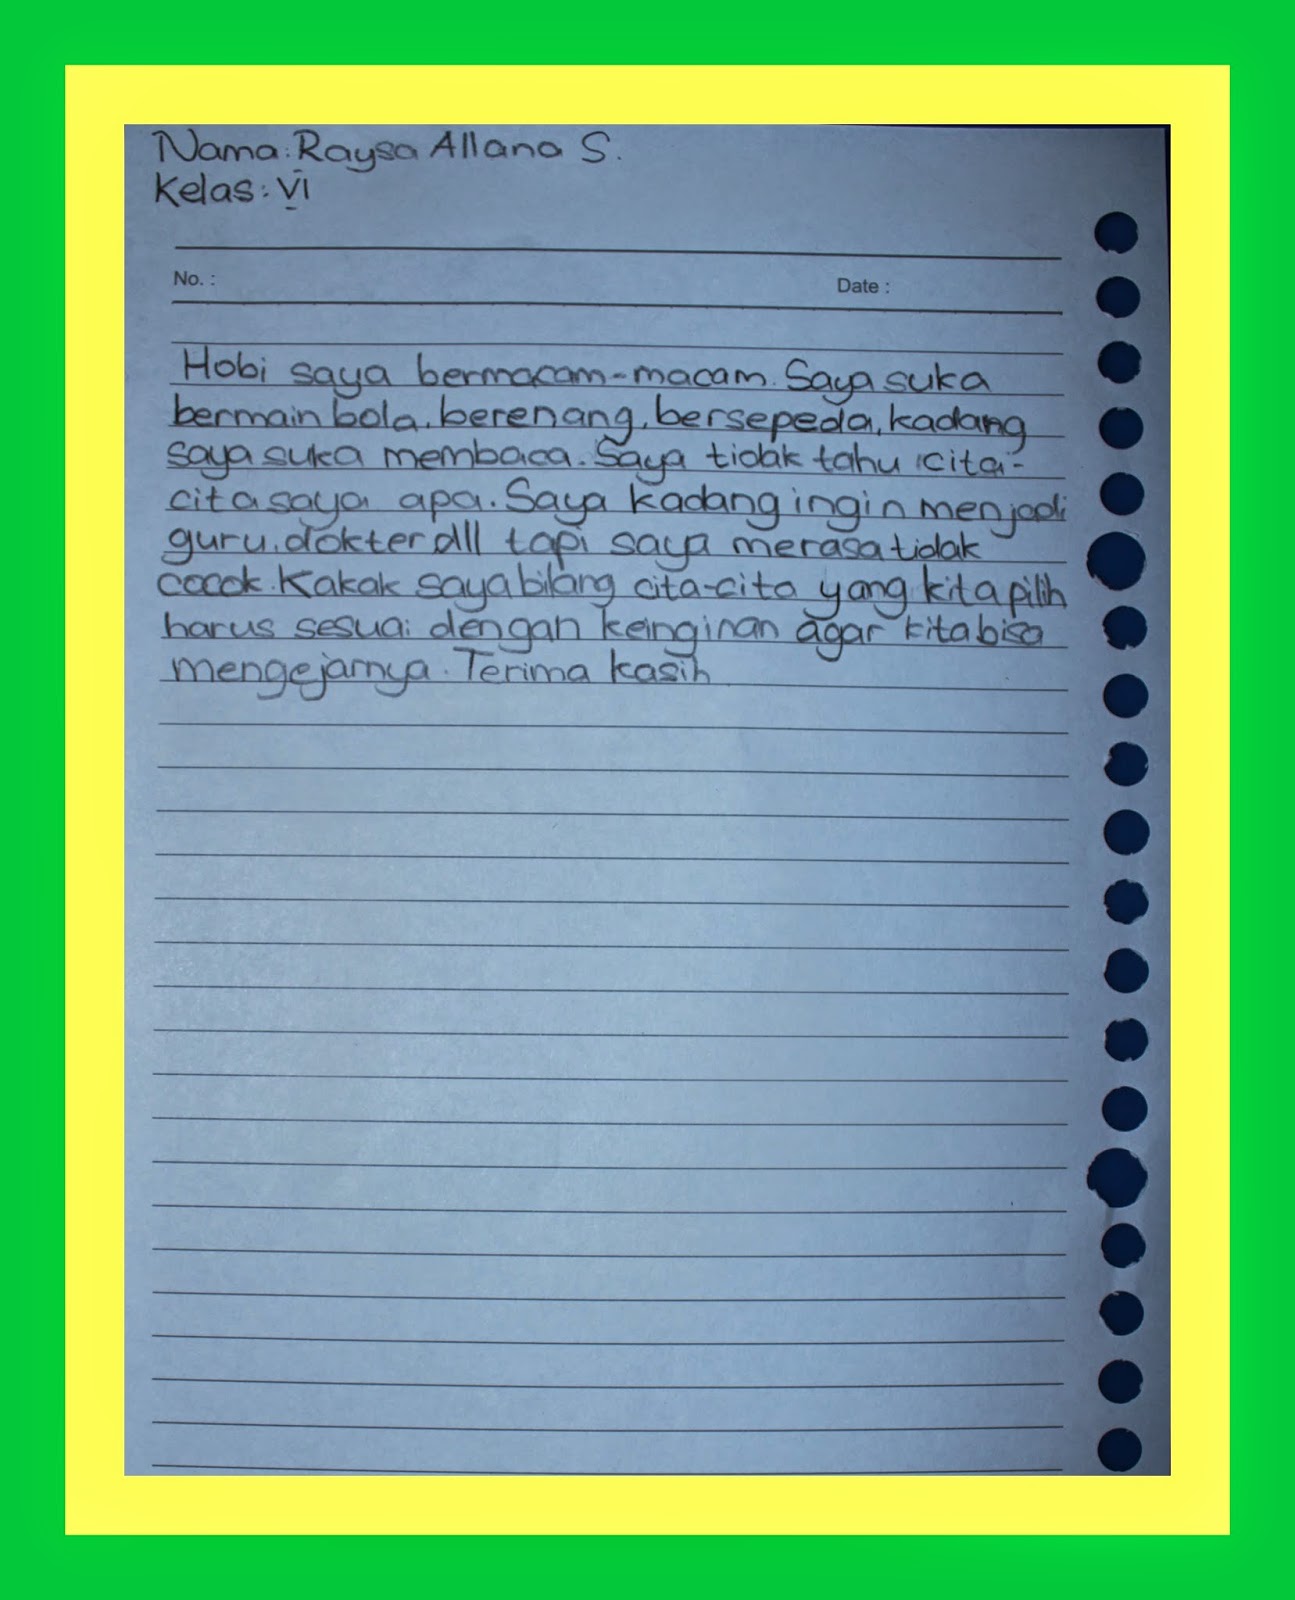 Nama: Raysa Allana S.
Kelas: VI
No. :
Date :
Hobi saya bermacam-macam. Saya suka
bermain bola, berenang, bersepeda, kadang
saya suka membaca. Saya tidak tahu cita-
cita saya apa. Saya kadang ingin menjadi
guru, dokter dll tapi saya merasa tidak
cocok. Kakak saya bilang cita-cita yang kita pilih
harus sesuai dengan keinginan agar kita bisa
mengejarnya. Terima kasih